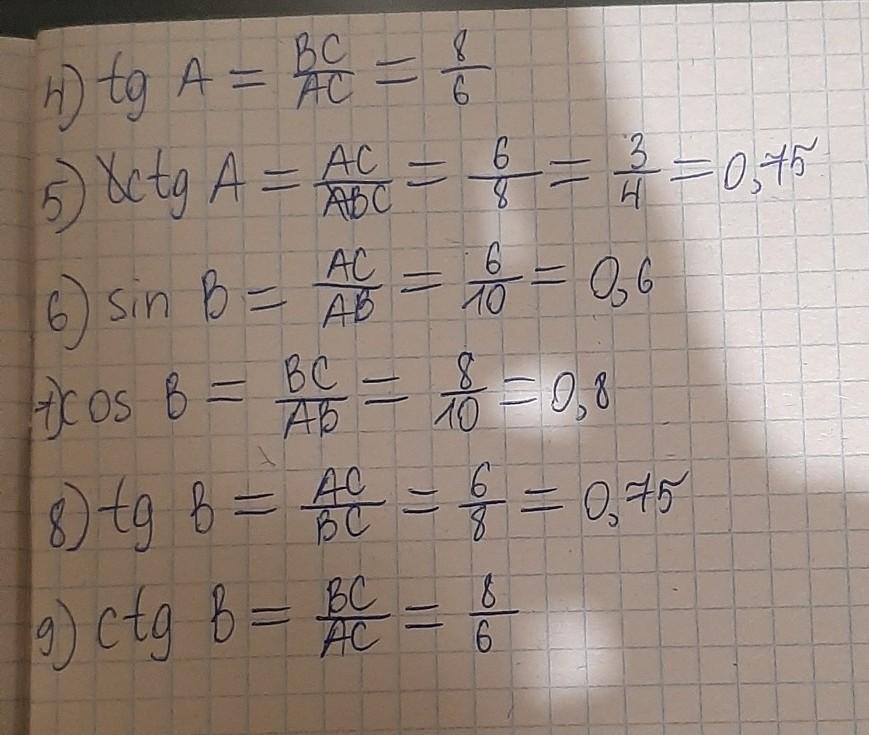 4) tg A = BC/AC = 8/6
5) ctg A = AC/BC = 6/8 = 3/4 = 0,75
6) sin B = AC/AB = 6/10 = 0,6
7) cos B = BC/AB = 8/10 = 0,8
8) tg B = AC/BC = 6/8 = 0,75
9) ctg B = BC/AC = 8/6